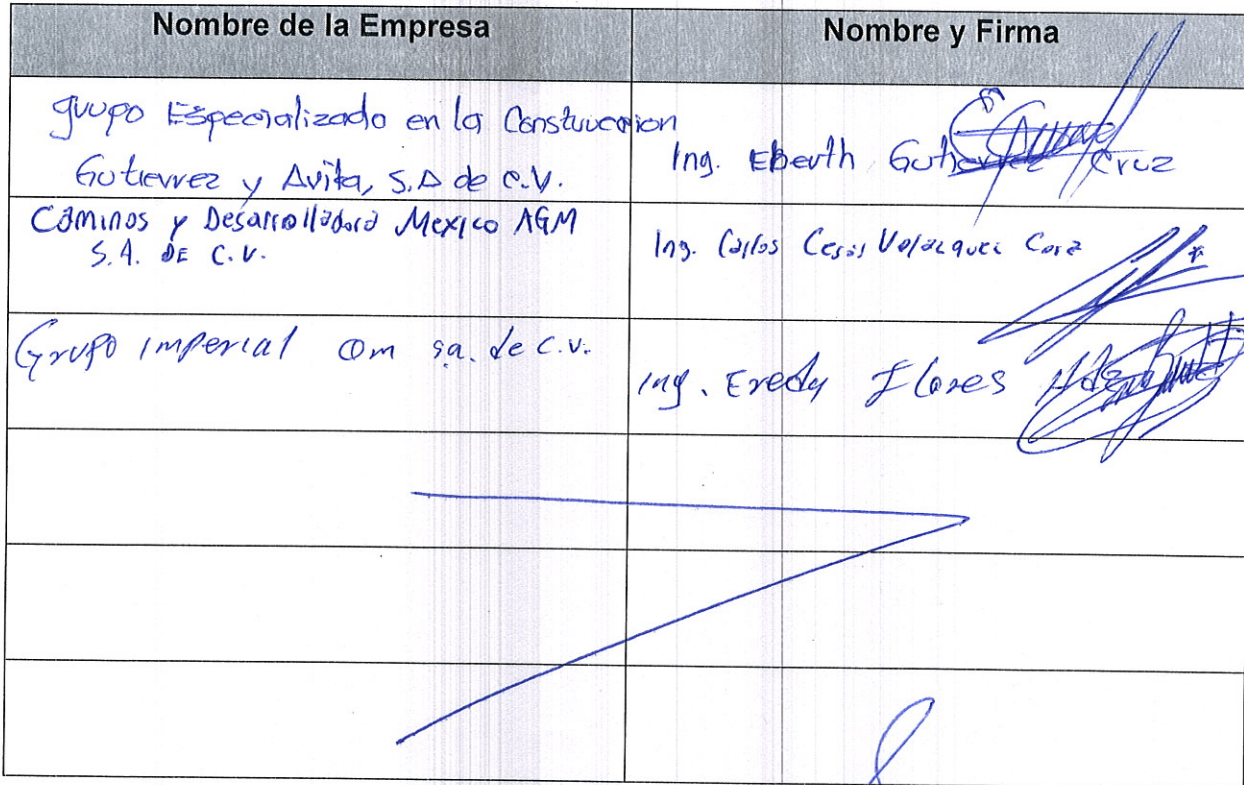 Nombre de la Empresa
Nombre y Firma
grupo Especializado en la Construccion
Gutierrez y Avita, S.A de C.V.
Ing. Eberth Gutierrez Cruz
Caminos y Desarrolladora Mexico AGM
S.A. DE C.V.
Ing. Carlos Cesar Velazquez
Grupo imperial om sa. de c.v.
Ing. Eredy Flores